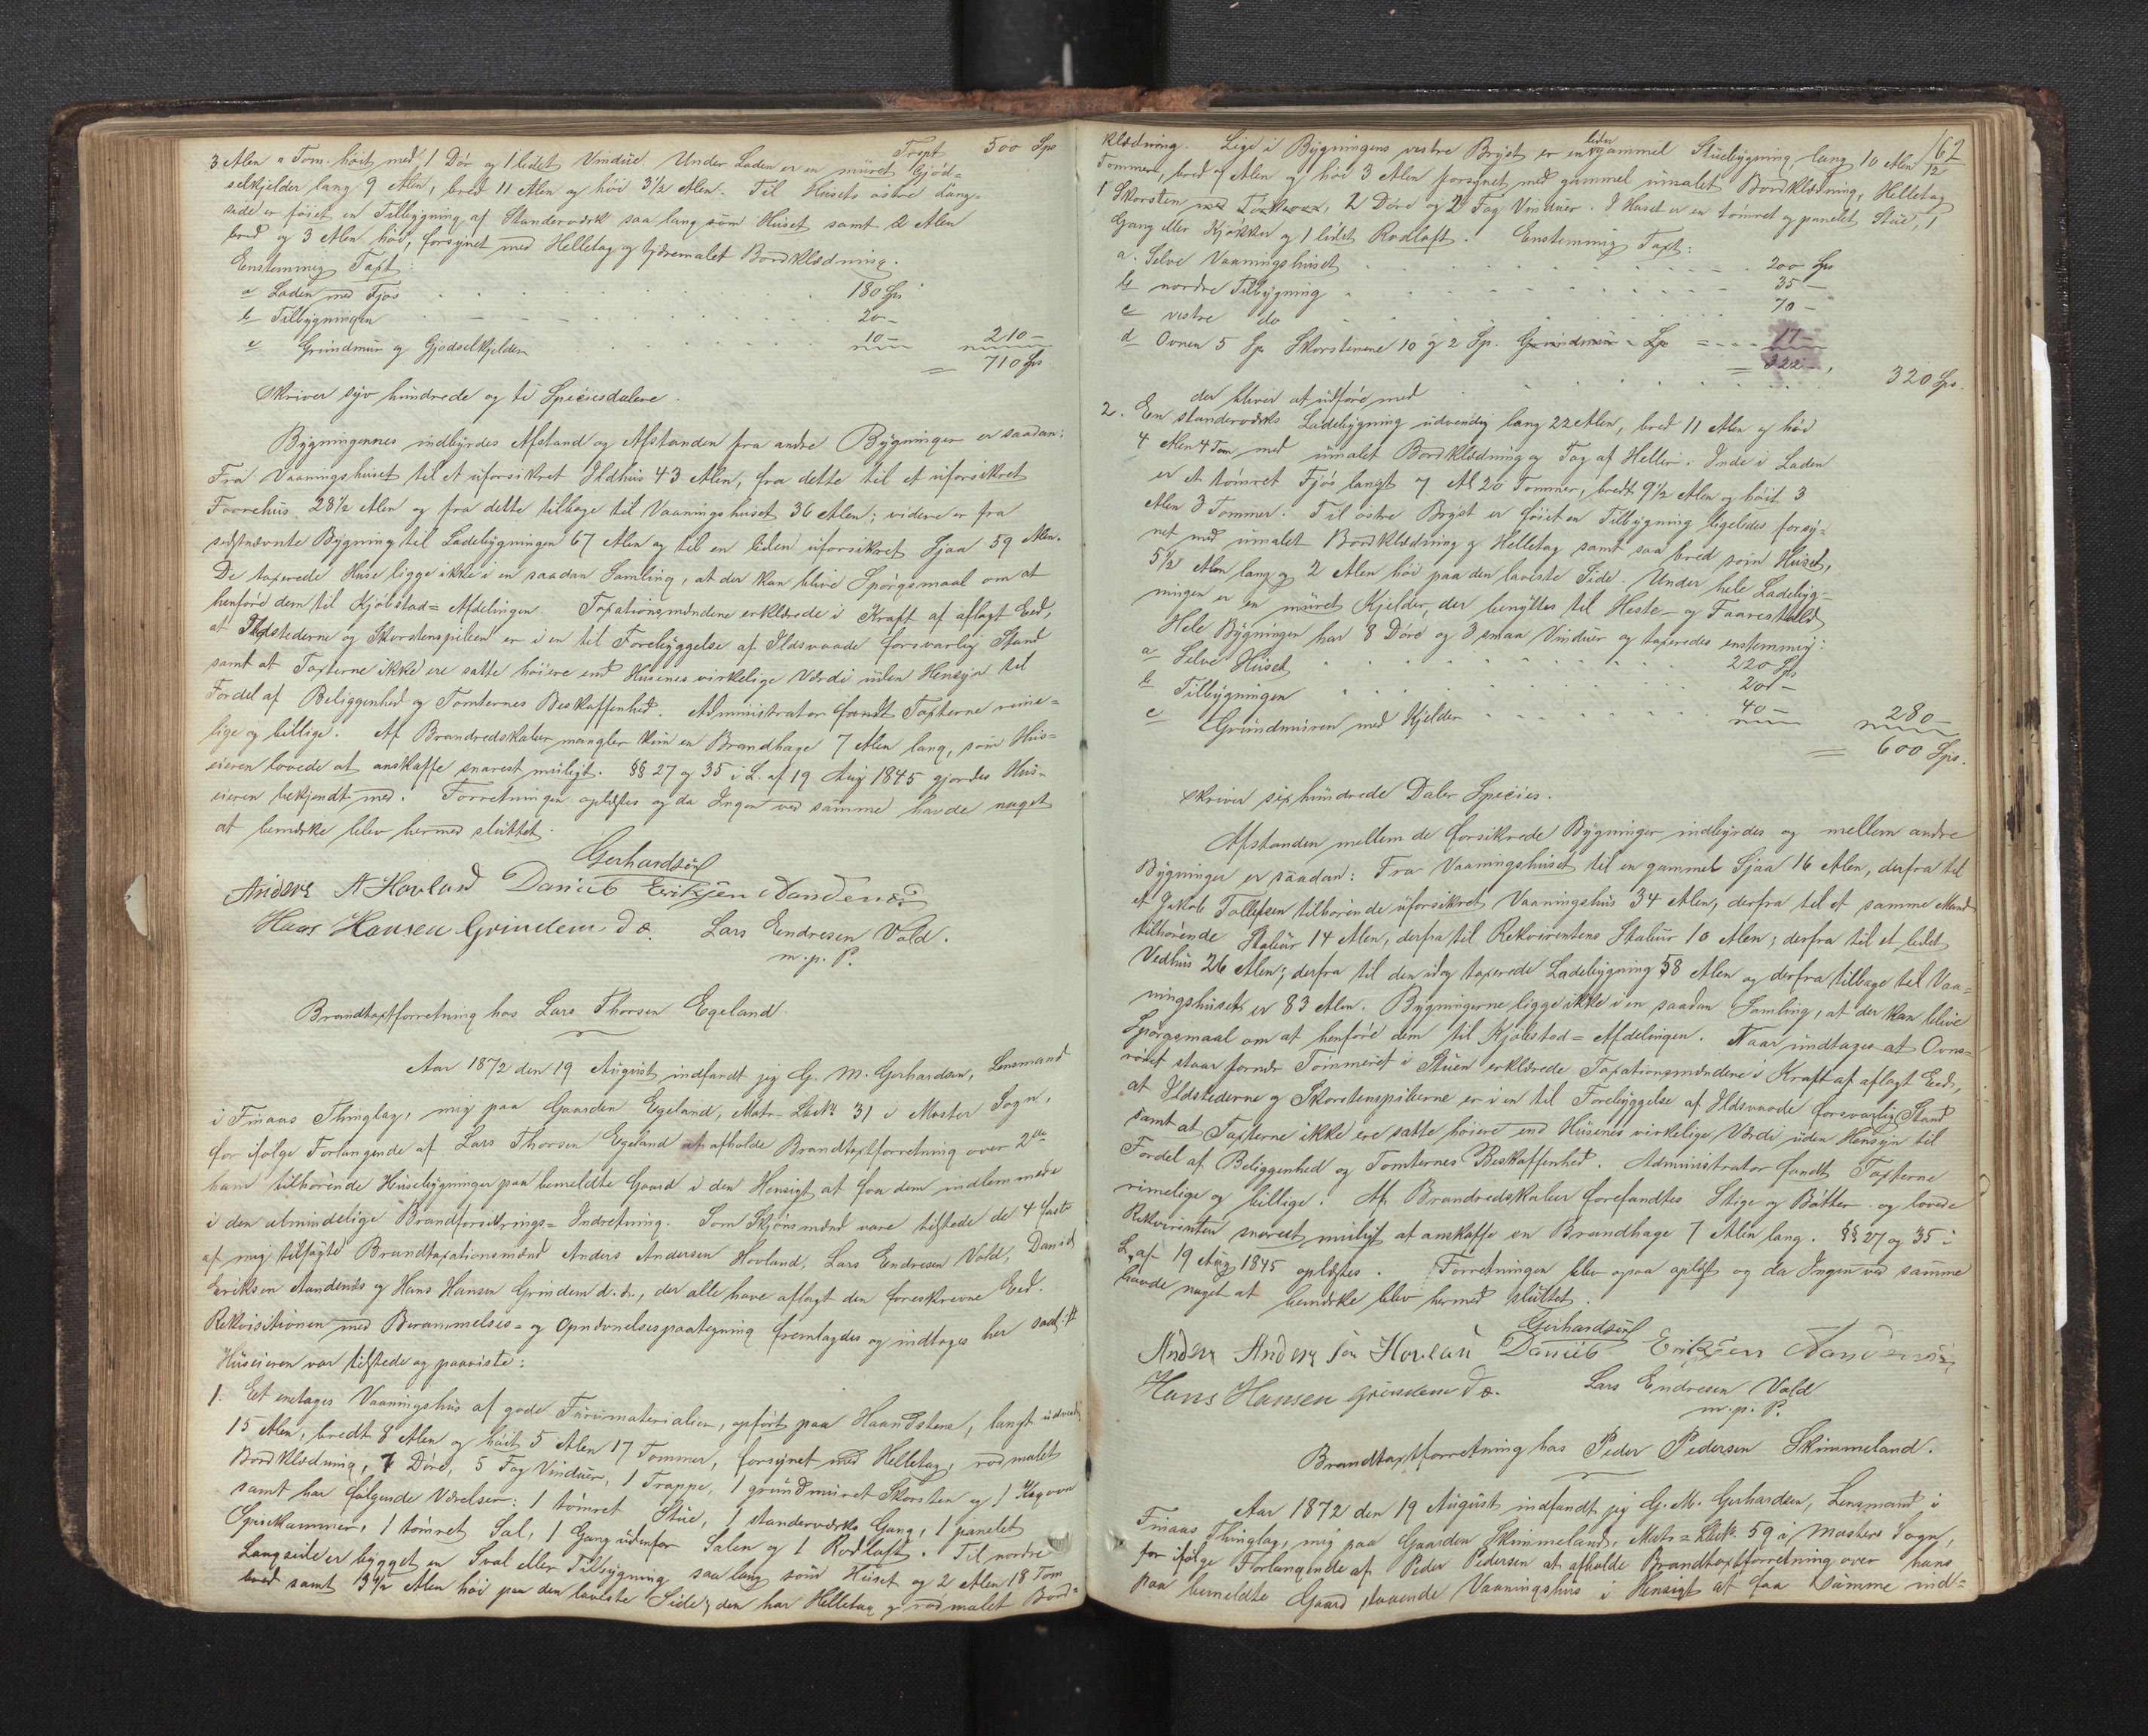 Trspt 500 Sps
3 Alen " Tom. höit med 1 Dör og 1 lidet Vindue. Under Laden er en müret Gjöd-
selkjelder lang 9 Alen, bred 11 Alen og höi 3½ Alen. Til Husets östre Lang-
side er föiet en Tilbygning af Standerværk saa lang som Huset samt 2 Alen
bred og 3 Alen höi, forsynet med Helletag og tjæremalet Bordklædning.
Enstemmig Taxt:
a Laden med Fjös 180 Sps
b Tilbygningen 20 —
c Grundmur og Gjödselkjelder 10 — 210 —
= 710 Sps
Skriver syv hundrede og ti Speciesdalere.
Bygningernes indbyrdes Afstand og Afstanden fra andre Bygninger er saadan:
Fra Vaaningshuset til et uforsikret Ildhus 43 Alen, fra dette til et uforsikret
Faarehus 28½ Alen og fra dette tilbage til Vaaningshuset 36 Alen; videre er fra
sidstnævnte Bygning til Ladebygningen 67 Alen og til en liden uforsikret Sjaa 59 Alen.
De taxerede Huse ligge ikke i en saadan Samling, at der kan blive Spörgsmaal om at
henföre dem til Kjöbstad-Afdelingen. Taxationsmændene erklærede i Kraft af aflagt Eed,
at Ildstederne og Skorstenspiben er i en til Forebyggelse af Ildsvaade forsvarlig Stand
samt at Taxterne ikke ere satte höiere end Husenes virkelige Værdi uden Hensyn til
Fordel af Beliggenhed og Tomternes Beskaffenhed. Administrator fandt Taxterne rime-
lige og billige. Af Brandredskaber mangler kun en Brandhage 7 Alen lang, som Hus-
eieren lovede at anskaffe snarest muligt. §§ 27 og 35 i L. af 19 Aug 1845 gjordes Hus-
eieren bekjendt med. Forretningen oplæstes og da Ingen ved samme havde noget
at bemærke blev hermed sluttet.
Gerhardsen
Anders A Hovland Daniel Eriksen Aandenes
Hans Hansen Grindem d.æ. Lars Endresen Vold.
m. p. P.
Brandtaxtforretning hos Lars Thorsen Egeland.
Aar 1872 den 19 August indfandt jeg G. M. Gerhardsen, Lensmand
i Finaas Thinglag, mig paa Gaarden Egeland, Matr. Löb№ 31 i Moster Sogn,
for ifölge Forlangende af Lars Thorsen Egeland at afholde Brandtaxtforretning over 2de
ham tilhörende Husebygninger paa bemeldte Gaard i den Hensigt at faa dem indlemmede
i den almindelige Brandforsikrings-Indretning. Som Skjönsmænd vare tilstede de 4 faste
af mig tilsagte Brandtaxationsmænd Anders Andersen Hovland, Lars Endresen Vold, Daniel
Eriksen Aandenes og Hans Hansen Grindem d. æ., der alle have aflagt den foreskrevne Eed.
Rekvisitionen med Berammelses- og Opnævnelsespaategning fremlagdes og indtages her saal:
Huseieren var tilstede og paaviste:
1. Et enetages Vaaningshus af gode Furumaterialier, opfört paa Haandstene, langt udvendig
15 Alen, bredt 8 Alen og höit 5 Alen 17 Tommer, forsynet med Helletag, rødmalet
Bordklædning, 7 Döre, 5 Fag Vinduer, 1 Trappe, 1 grundmuret Skorsten og 1 Kogovn
samt har fölgende Værelser: 1 tömret Stue, 1 standerværks Gang, 1 panelet
Spisekammer, 1 tömret Sal, 1 Gang udenfor Salen og 1 Rodloft. Til nordre
Langside er bygget en Sval eller Tilbygning saa lang som Huset og 2 Alen 18 Tom
bred samt 3½ Alen höi paa den laveste Side; den har Helletag og rødmalet Bord-
62
klædning. Lige i Bygningens vestre Bryst er en liden gammel Stuebygning lang 10 Alen
Tommer, bred 9 Alen og höi 3 Alen forsynet med gammel umalet Bordklædning, Helletag
1 Skorsten, 2 Döre og 2 Fag Vinduer. I Huset er en tömret og panelet Stue, 1
Gang eller Kjökken og 1 lidet Rodloft. Enstemmig Taxt:
a. Selve Vaaningshuset 200 Sps
b nordre Tilbygning 35 —
c vestre do 70 —
d Ovnen 5 Sps Skorstenene 10 og 2 Sp. Grundmur " Sp = 17 —
= 322 —
der bliver at udföre med 320 Sps.
2. En standerværks Ladebygning udvendig lang 22 Alen, bred 11 Alen og höi
4 Alen 4 Tom med umalet Bordklædning og Tag af Heller. Inde i Laden
er et tömret Fjös langt 7 Al 20 Tommer, bredt 9½ Alen og höit 3
Alen 3 Tommer. Til östre Bryst er föiet en Tilbygning ligeledes forsy-
net med umalet Bordklædning og Helletag samt saa bred som Huset,
5½ Alen lang og 2 Alen höi paa den laveste Side. Under hele Ladebyg-
ningen er en müret Kjelder, der benyttes til Heste- og Faarestald
Hele Bygningen har 8 Döre og 3 smaa Vinduer og taxeredes enstemmig:
a Selve Huset 220 Sps
b Tilbygningen 20 —
c Grundmuren med Kjelder 40 — 280 —
= 600 Sps.
Skriver sex hundrede Daler Species.
Afstanden mellem de forsikrede Bygninger indbyrdes og mellem andre
Bygninger er saadan: Fra Vaaningshuset til en gammel Sjaa 16 Alen, derfra til
et Jakob Tollefsen tilhörende uforsikret Vaaningshus 34 Alen, derfra til et samme Mand
tilhörende Stabur 14 Alen, derfra til Rekvirentens Stabur 10 Alen; derfra til et lidet
Vedhus 26 Alen; derfra til den idag taxerede Ladebygning 58 Alen og derfra tilbage til Vaa-
ningshuset er 83 Alen. Bygningerne ligge ikke i en saadan Samling, at der kan blive
Spörgsmaal om at henföre dem til Kjöbstad-Afdelingen. Naar undtages at Ovns-
röret staar for nær Tömmeret i Stuen erklærede Taxationsmændene i Kraft af aflagt Eed,
at Ildstederne og Skorstenspiberne er i en til Forebyggelse af Ildsvaade forsvarlig Stand
samt at Taxterne ikke ere satte höiere end Husenes virkelige Værdi uden Hensyn til
Fordel af Beliggenhed og Tomternes Beskaffenhed. Administrator fandt Taxterne
rimelige og billige. Af Brandredskaber forefandtes Stige og Bötter og lovede
Rekvirenten snarest muligt at anskaffe en Brandhage 7 Alen lang. §§ 27 og 35 i
L. af 19 Aug 1845 oplæstes. Forretningen blev ogsaa oplæst og da Ingen ved samme
havde noget at bemærke blev hermed sluttet.
Gerhardsen
Anders Anders sen Hovland Daniel Eriksen Aandenes
Hans Hansen Grindem d.æ. Lars Endresen Vold
m. p. P.
Brandtaxtforretning hos Peder Pedersen Skimmeland.
Aar 1872 den 19 August indfandt jeg G. M. Gerhardsen, Lensmand i
Finaas Thinglag, mig paa Gaarden Skimmeland, Matr-Löb№ 59 i Mosters Sogn,
for ifölge Forlangende af Peder Pedersen at afholde Brandtaxtforretning over hans
paa bemeldte Gaard staaende Vaaningshus i Hensigt at faa samme ind-